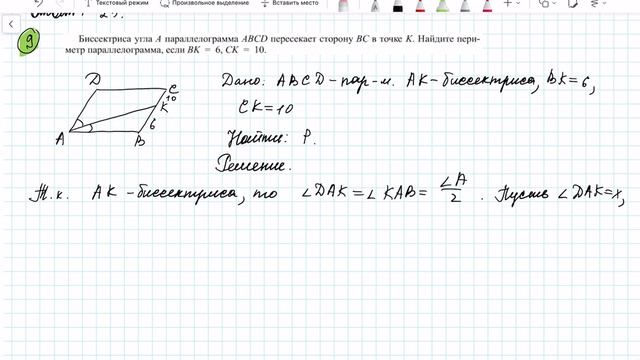 Текстовый режим Произвольное выделение Вставить место
Ответ: 29.
9
Биссектриса угла A параллелограмма ABCD пересекает сторону BC в точке K. Найдите пери-
метр параллелограмма, если BK = 6, CK = 10.
Дано: ABCD-пар-м. AK-биссектриса, BK=6,
CK=10
Найти: P.
Решение.
D C
10
K
6
A B
Т.к. AK-биссектриса, то ∠DAK=∠KAB= ∠A/2. Пусть ∠DAK=x,